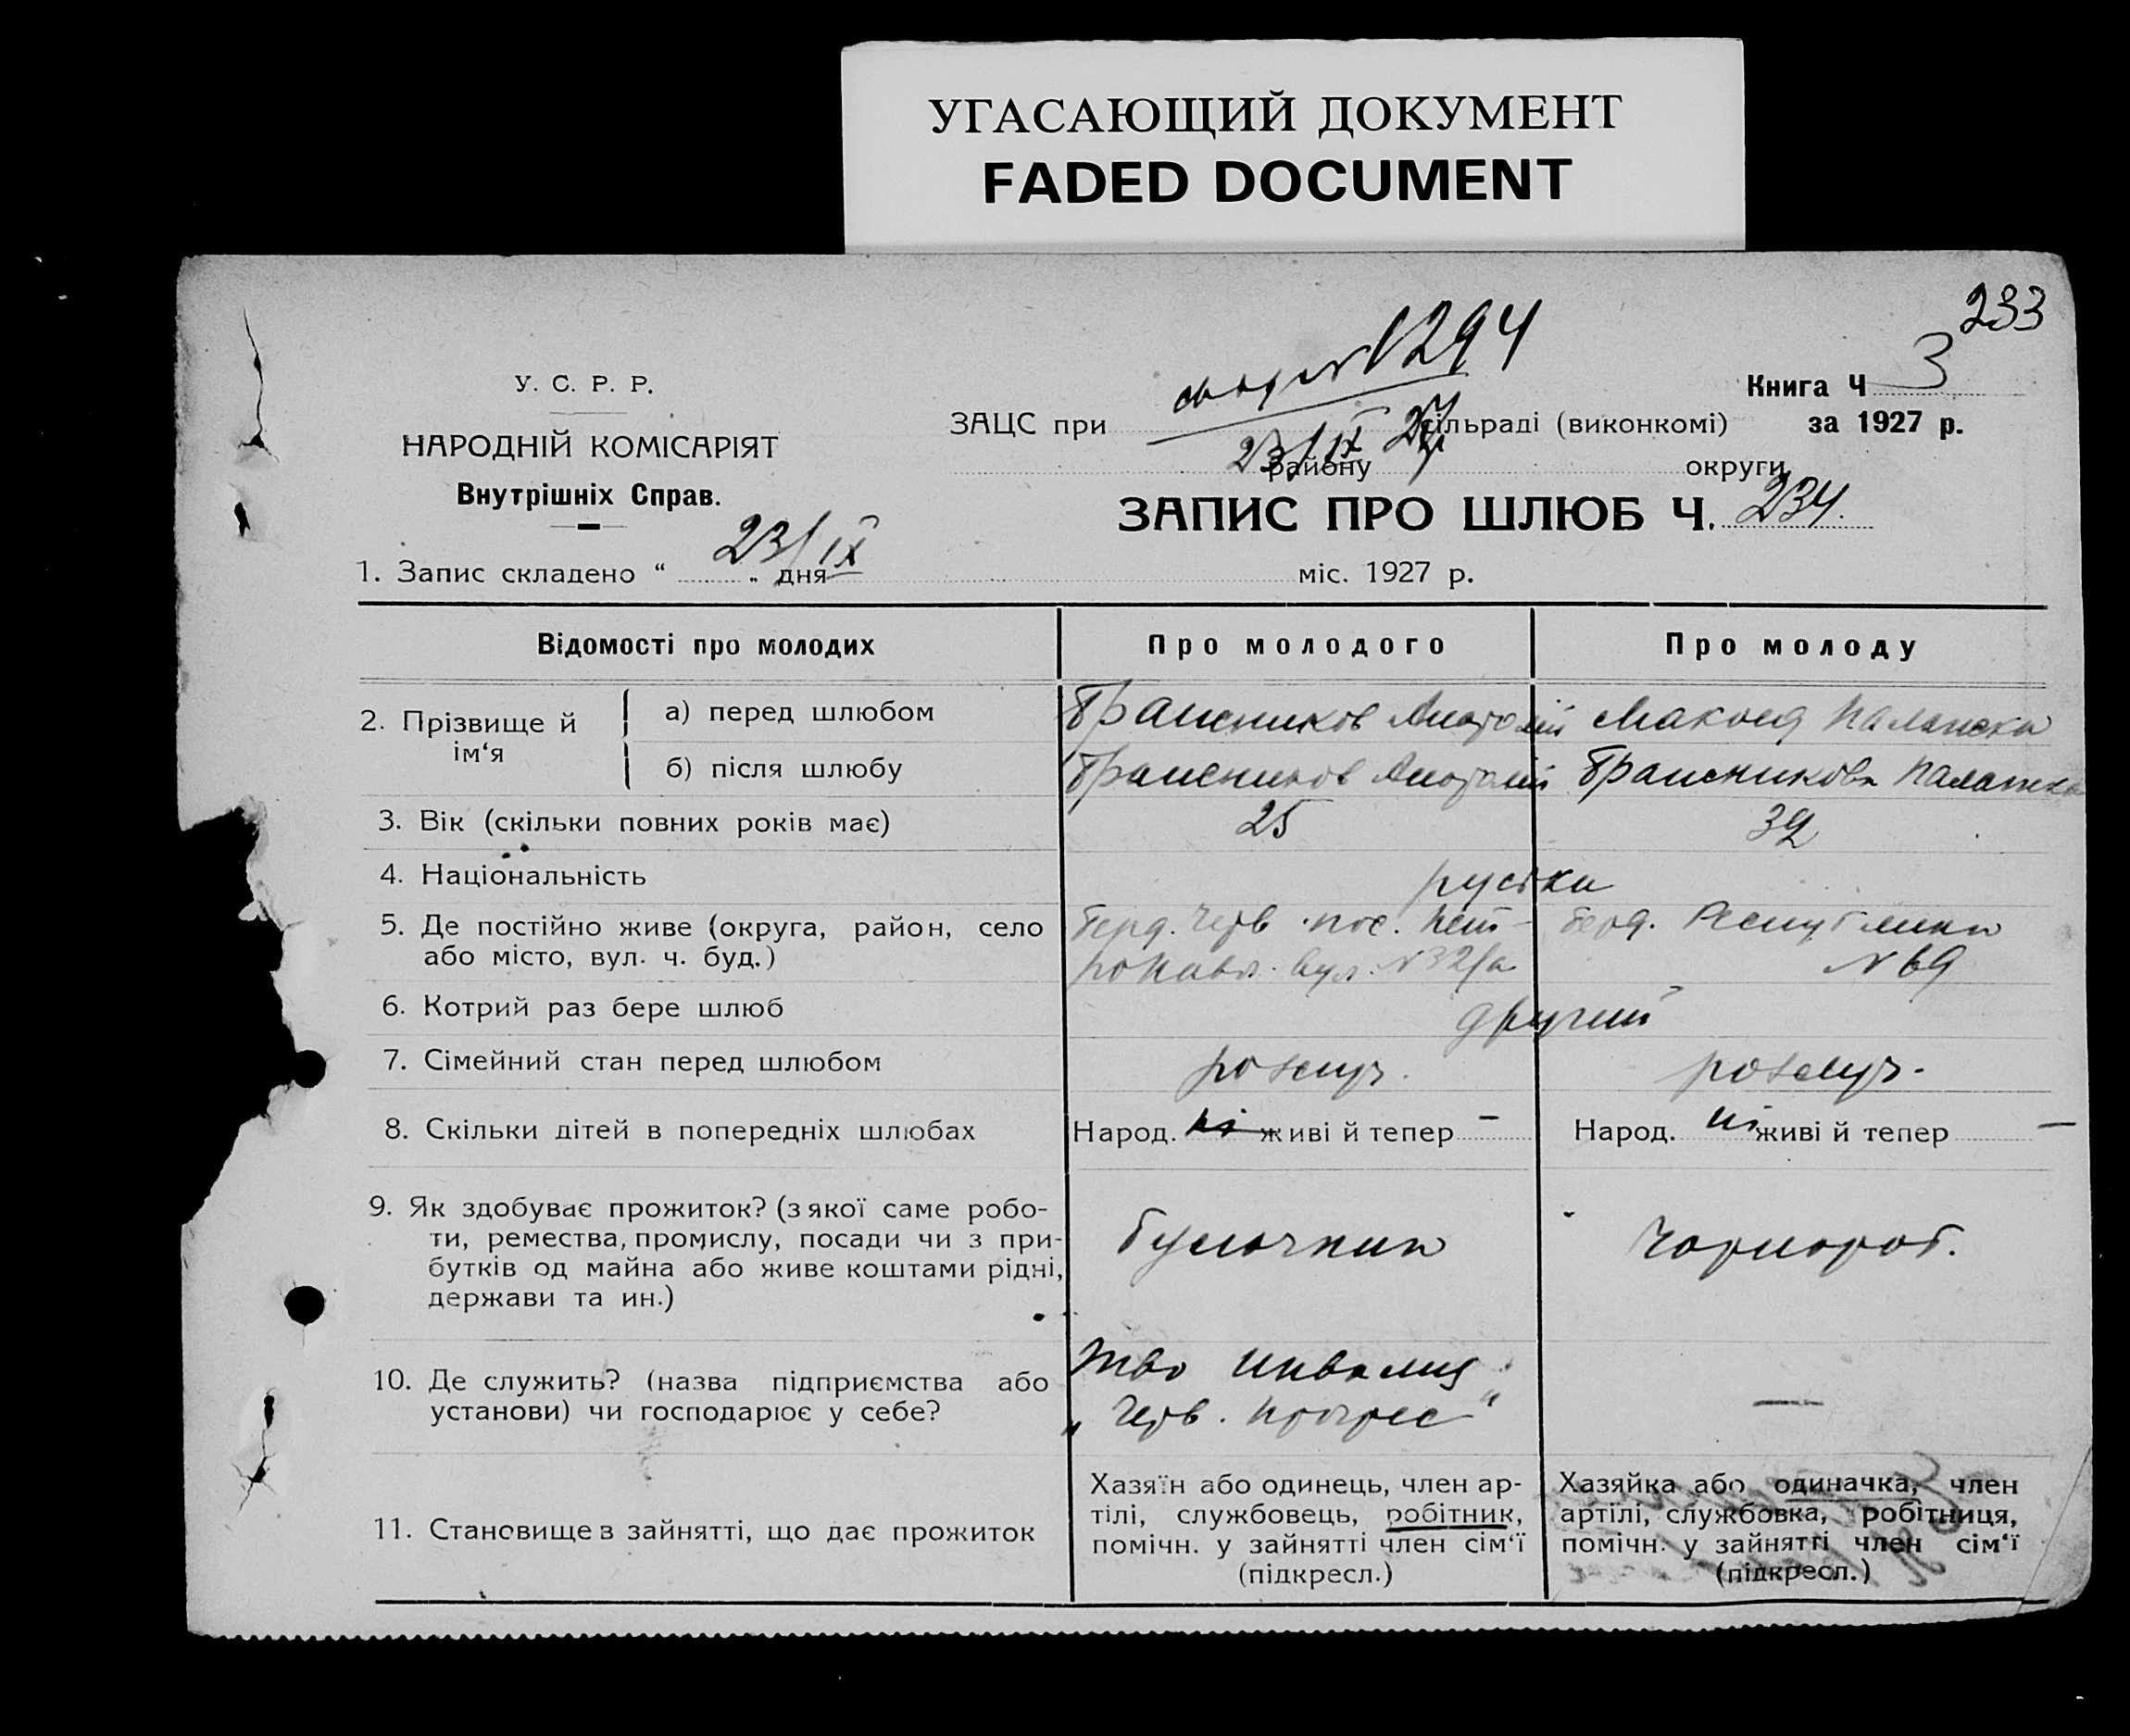 УГАСАЮЩИЙ ДОКУМЕНТ
FADED DOCUMENT
233
N 1294
У. С. Р. Р.
Книга Ч 3
ЗАЦС при сільраді (виконкомі) за 1927 р.
НАРОДНІЙ КОМІСАРІЯТ
23/IX 27
району округи
Внутрішніх Справ.
ЗАПИС ПРО ШЛЮБ Ч. 234.
1. Запис складено “ 23/IX „ дня міс. 1927 р.
Відомості про молодих Про молодого Про молоду
2. Прізвище й ім‘я
а) перед шлюбом Анатолій
б) після шлюбу Анатолій
3. Вік (скільки повних років має) 25 32
4. Національність руські
5. Де постійно живе (округа, район, село Берд. Черв. пос. Пет- Берд. Республики
або місто, вул. ч. буд.) ропавл. вул. N 32/а N 69
6. Котрий раз бере шлюб другий
7. Сімейний стан перед шлюбом розлуч. розлуч.
8. Скільки дітей в попередніх шлюбах Народ. ні живі й тепер — Народ. ні живі й тепер —
9. Як здобуває прожиток? (з якої саме робо-
ти, ремества, промислу, посади чи з при- булочник чорнороб.
бутків од майна або живе коштами рідні,
держави та ин.)
10. Де служить? (назва підприємства або Тво инвалид —
установи) чи господарює у себе? „Черв. Прогрес“
11. Становище в зайнятті, що дає прожиток
Хазяїн або одинець, член ар-
тілі, службовець, робітник,
помічн. у зайнятті член сім‘ї
(підкресл.)
Хазяйка або одиначка, член
артілі, службовка, робітниця,
помічн. у зайнятті член сім‘ї
(підкресл.)